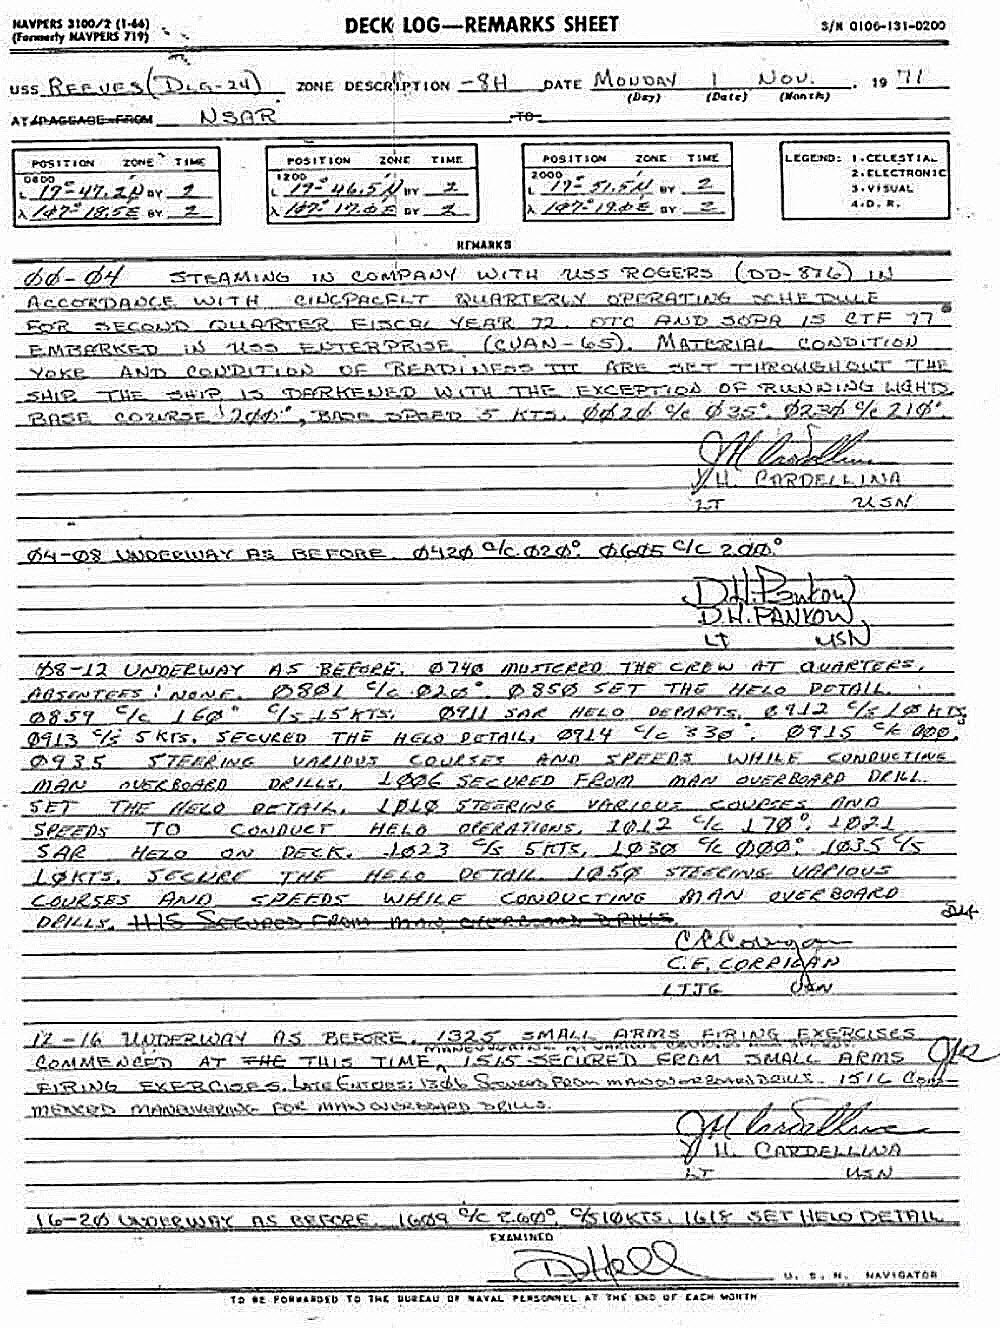 NAVPERS 3100/2 (1-66)
(Formerly NAVPERS 719)
DECK LOG—REMARKS SHEET
S/N 0106-131-0200
USS REEVES (DLG-24) ZONE DESCRIPTION -8H DATE MONDAY 1 NOV. 19 71
(Day) (Date) (Month)
AT/PASSAGE FROM NSAR TO
POSITION ZONE TIME
0800
L 17°-47.2N BY 2
λ 107°-18.5E BY 2
POSITION ZONE TIME
1200
L 17°-46.5N BY 2
λ 107°-17.0E BY 2
POSITION ZONE TIME
2000
L 17°-51.5N BY 2
λ 107°-19.0E BY 2
LEGEND: 1-CELESTIAL
2-ELECTRONIC
3-VISUAL
4-D. R.
REMARKS
00-04 STEAMING IN COMPANY WITH USS ROGERS (DD-876) IN
ACCORDANCE WITH CINCPACFLT QUARTERLY OPERATING SCHEDULE
FOR SECOND QUARTER FISCAL YEAR 72. OTC AND SOPA IS CTF 77
EMBARKED IN USS ENTERPRISE (CVAN-65). MATERIAL CONDITION
YOKE AND CONDITION OF READINESS III ARE SET THROUGHOUT THE
SHIP. THE SHIP IS DARKENED WITH THE EXCEPTION OF RUNNING LIGHTS.
BASE COURSE 200°, BASE SPEED 5 KTS. 0020 c/c 035°. 0230 c/c 210°.
J H Cardellina
J H. CARDELLINA
LT USN
04-08 UNDERWAY AS BEFORE. 0420 c/c 020°. 0605 c/c 200°.
D.H. Pankow
D.H. PANKOW
LT USN
08-12 UNDERWAY AS BEFORE. 0740 MUSTERED THE CREW AT QUARTERS.
ABSENTEES: NONE. 0801 c/c 020°. 0850 SET THE HELO DETAIL.
0859 c/c 160° c/s 15 KTS. 0911 SAR HELO DEPARTS. 0912 c/s 10 KTS.
0913 c/s 5 KTS. SECURED THE HELO DETAIL. 0914 c/c 330°. 0915 c/c 000.
0935 STEERING VARIOUS COURSES AND SPEEDS WHILE CONDUCTING
MAN OVERBOARD DRILLS. 1006 SECURED FROM MAN OVERBOARD DRILL.
SET THE HELO DETAIL. 1010 STEERING VARIOUS COURSES AND
SPEEDS TO CONDUCT HELO OPERATIONS. 1012 c/c 170°. 1021
SAR HELO ON DECK. 1023 c/s 5KTS. 1030 c/c 000°. 1035 c/s
10KTS. SECURE THE HELO DETAIL. 1050 STEERING VARIOUS
COURSES AND SPEEDS WHILE CONDUCTING MAN OVERBOARD
DRILLS. SECURED FROM MAN OVERBOARD DRILLS.
C E Corrigan
C.E. CORRIGAN
LTJG USN
12-16 UNDERWAY AS BEFORE. 1325 SMALL ARMS FIRING EXERCISES
MANEUVERING AT VARIOUS COURSES AND SPEEDS.
COMMENCED AT THE THIS TIME. 1515 SECURED FROM SMALL ARMS
FIRING EXERCISES. LATE ENTRIES: 1306 SECURED FROM MAN OVERBOARD DRILLS. 1516 COM-
MENCED MANEUVERING FOR MAN OVERBOARD DRILLS.
J H Cardellina
J H. CARDELLINA
LT USN
16-20 UNDERWAY AS BEFORE. 1609 c/c 260°. c/s 10KTS. 1618 SET HELO DETAIL
EXAMINED
U. S. N. NAVIGATOR
TO BE FORWARDED TO THE BUREAU OF NAVAL PERSONNEL AT THE END OF EACH MONTH